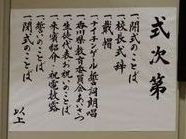 式次第
一、開式のことば
一、戴帽
一、校長式辞
一、ナイチンゲール誓詞朗唱
一、香川県教育委員会あいさつ
一、生徒代表お祝いのことば
一、来賓紹介・祝電披露
一、誓いのことば
一、閉式のことば
以上